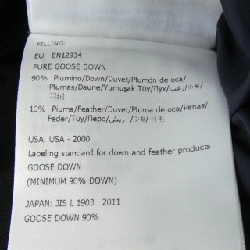 FILLING:
EU EN12934
PURE GOOSE DOWN
90% Piumino/Down/Duvet/Plumón de oca/
Plumas/Daune/Yumuşak Tüy/Пух/
10% Piuma/Feather/Duvet/Pluma de oca/Penas/
Feder/Tüy/Перо/
USA USA - 2000
Labeling standard for down and feather products
GOOSE DOWN
(MINIMUM 90% DOWN)
JAPAN: JIS L 1903 2011
GOOSE DOWN 90%